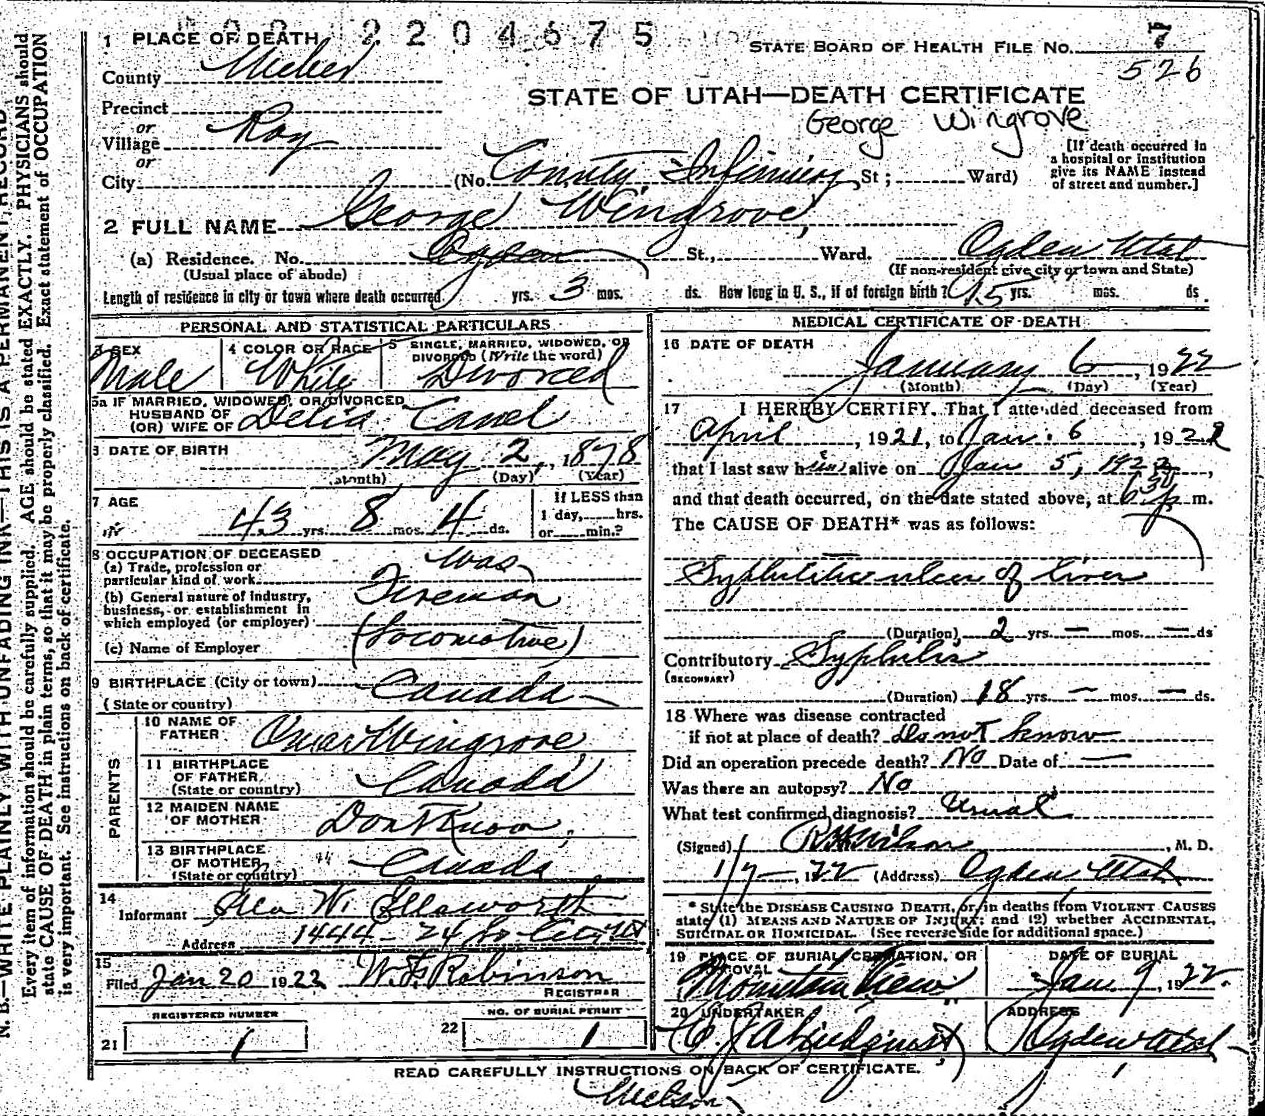 2204675
1 PLACE OF DEATH
STATE BOARD OF HEALTH FILE NO. 7
526
County Weber
STATE OF UTAH—DEATH CERTIFICATE
George Wingrove
Precinct
or
Village Roy
or
City
(No. County Infirmary St; Ward)
[If death occurred in
a hospital or institution
give its NAME instead
of street and number.]
2 FULL NAME George Wingrove,
(a) Residence. No. Ogden St., Ward. Ogden Utah
(Usual place of abode)
(If non-resident give city or town and State)
Length of residence in city or town where death occurred yrs. 3 mos. ds. How long in U. S., if of foreign birth? 15 yrs. mos. ds.
PERSONAL AND STATISTICAL PARTICULARS
3 SEX
Male
4 COLOR OR RACE
White
5 SINGLE, MARRIED, WIDOWED, OR
DIVORCED (Write the word)
Divorced
5a IF MARRIED, WIDOWED, OR DIVORCED
HUSBAND OF
(OR) WIFE OF Delia
6 DATE OF BIRTH May 2, 1878
(Month) (Day) (Year)
7 AGE
43 yrs. 8 mos. 4 ds.
If LESS than
1 day, hrs.
or min.?
8 OCCUPATION OF DECEASED
(a) Trade, profession or
particular kind of work
was
Fireman
(b) General nature of industry,
business, or establishment in
which employed (or employer)
(c) Name of Employer
(Locomotive)
9 BIRTHPLACE (City or town)
(State or country)
Canada
PARENTS
10 NAME OF
FATHER
Wingrove
11 BIRTHPLACE
OF FATHER
(State or country)
Canada
12 MAIDEN NAME
OF MOTHER
Dont Know,
13 BIRTHPLACE
OF MOTHER
(State or country)
Canada
14
Informant W. Ellsworth
Address 1444 - 24 So City Ut
15
Filed Jan 20 1922 W. F. Robinson
REGISTRAR
21
REGISTERED NUMBER
1
22
NO. OF BURIAL PERMIT
1
MEDICAL CERTIFICATE OF DEATH
16 DATE OF DEATH
January 6, 1922
(Month) (Day) (Year)
17 I HEREBY CERTIFY, That I attended deceased from
April, 1921, to Jan. 6, 1922
that I last saw him alive on Jan 5, 1922,
and that death occurred, on the date stated above, at 6 30 p m.
The CAUSE OF DEATH* was as follows:
Syphilitic ulcer of liver
(Duration) 2 yrs. — mos. — ds
Contributory Syphilis
(SECONDARY)
(Duration) 18 yrs. — mos. — ds.
18 Where was disease contracted
if not at place of death? Do not know
Did an operation precede death? No Date of —
Was there an autopsy? No
What test confirmed diagnosis? Usual
(Signed) Wilson, M. D.
1/7 —, 1922 (Address) Ogden Utah
* State the DISEASE CAUSING DEATH, or, in deaths from VIOLENT CAUSES
state (1) MEANS AND NATURE OF INJURY; and (2) whether ACCIDENTAL,
SUICIDAL OR HOMICIDAL. (See reverse side for additional space.)
19 PLACE OF BURIAL, CREMATION, OR
REMOVAL
Mountain View
DATE OF BURIAL
Jan 9, 1922.
20 UNDERTAKER
Lindquist
ADDRESS
Ogden Utah
READ CAREFULLY INSTRUCTIONS ON BACK OF CERTIFICATE.
N. B.—WRITE PLAINLY WITH UNFADING INK—THIS IS A PERMANENT RECORD
Every item of information should be carefully supplied. AGE should be stated EXACTLY. PHYSICIANS should
state CAUSE OF DEATH in plain terms, so that it may be properly classified. Exact statement of OCCUPATION
is very important. See instructions on back of certificate.